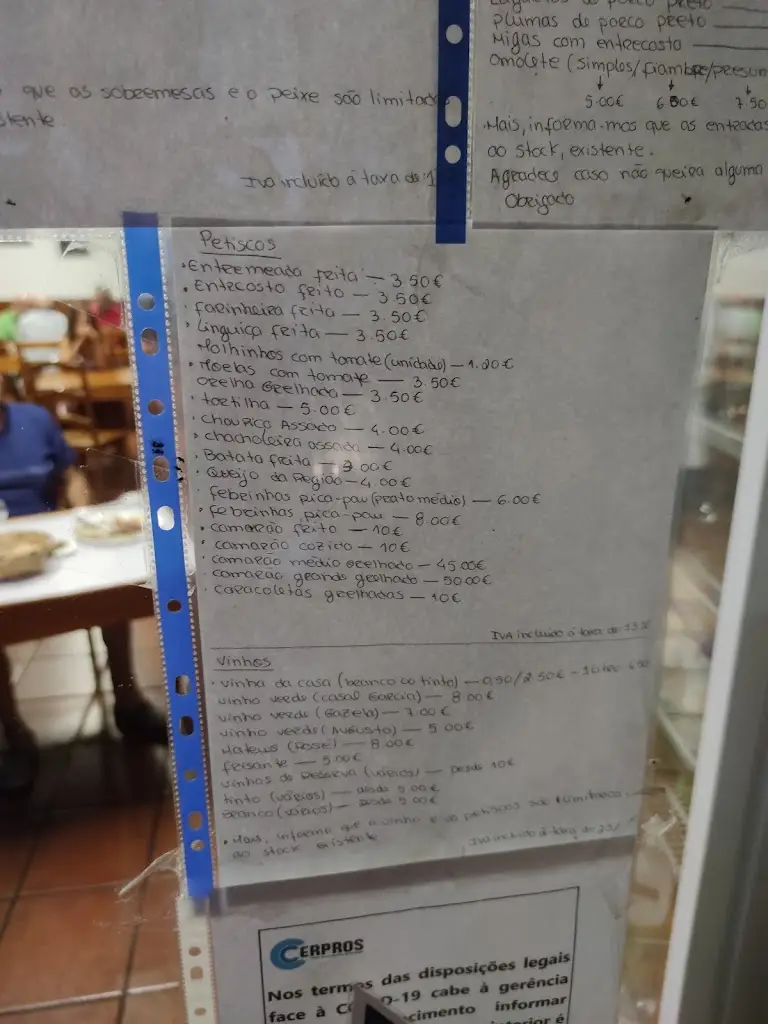 que as sobremesas e o peixe são limitados
stente.
IVA incluído á taxa de 1
Plumas de porco preto
Migas com entrecosto
Omolete (simples/fiambre/presun
5.00€ 6.50€ 7.50
Mais, informa-mos que as entradas
ao stock, existente.
Agradece caso não queira alguma
Obrigado
Petiscos
• Entremeada frita — 3.50€
• Entecosto frito — 3.50€
• farinheira frita — 3.50€
• Linguiça frita — 3.50€
Molhinhos com tomate (unidade) — 1.20€
• Moelas com tomate — 3.50€
orelha Grelhado — 3.50€
• tortilha — 5.00€
• Chouriço Assado — 4.00€
• chacholeira assada — 4.00€
• Batata frita — 3.00€
• Queijo da Região — 4.00€
• febrinhas pica-pau (prato médio) — 6.00€
• febrinhas pica-pau — 8.00€
• camarão frito — 10€
• camarão cozido — 10€
• camarão médio grelhado — 45.00€
camarão grande grelhado — 50.00€
• caracoletas grelhadas — 10€
IVA incluido á taxa de 13%
Vinhos
• vinha da casa (branco ou tinto) — 0,90/2.50€ - 1 Litro
vinho verde (casal Garcia) — 8.00€
vinho verde (Gazela) — 7.00€
vinho verde (Augusto) — 5.00€
Mateus (Rosé) — 8.00€
frisante — 5.00€
vinhos de Reserva (vários) — Desde 10€
tinto (vários) — desde 5.00€
Branco (vários) — Desde 5.00€
• Mais, informo que o vinho e os petiscos são limitados
ao stock existente
IVA incluido á taxa de 23%
CERPROS
Nos termos das disposições legais
face à D-19 cabe à gerência
cimento informar